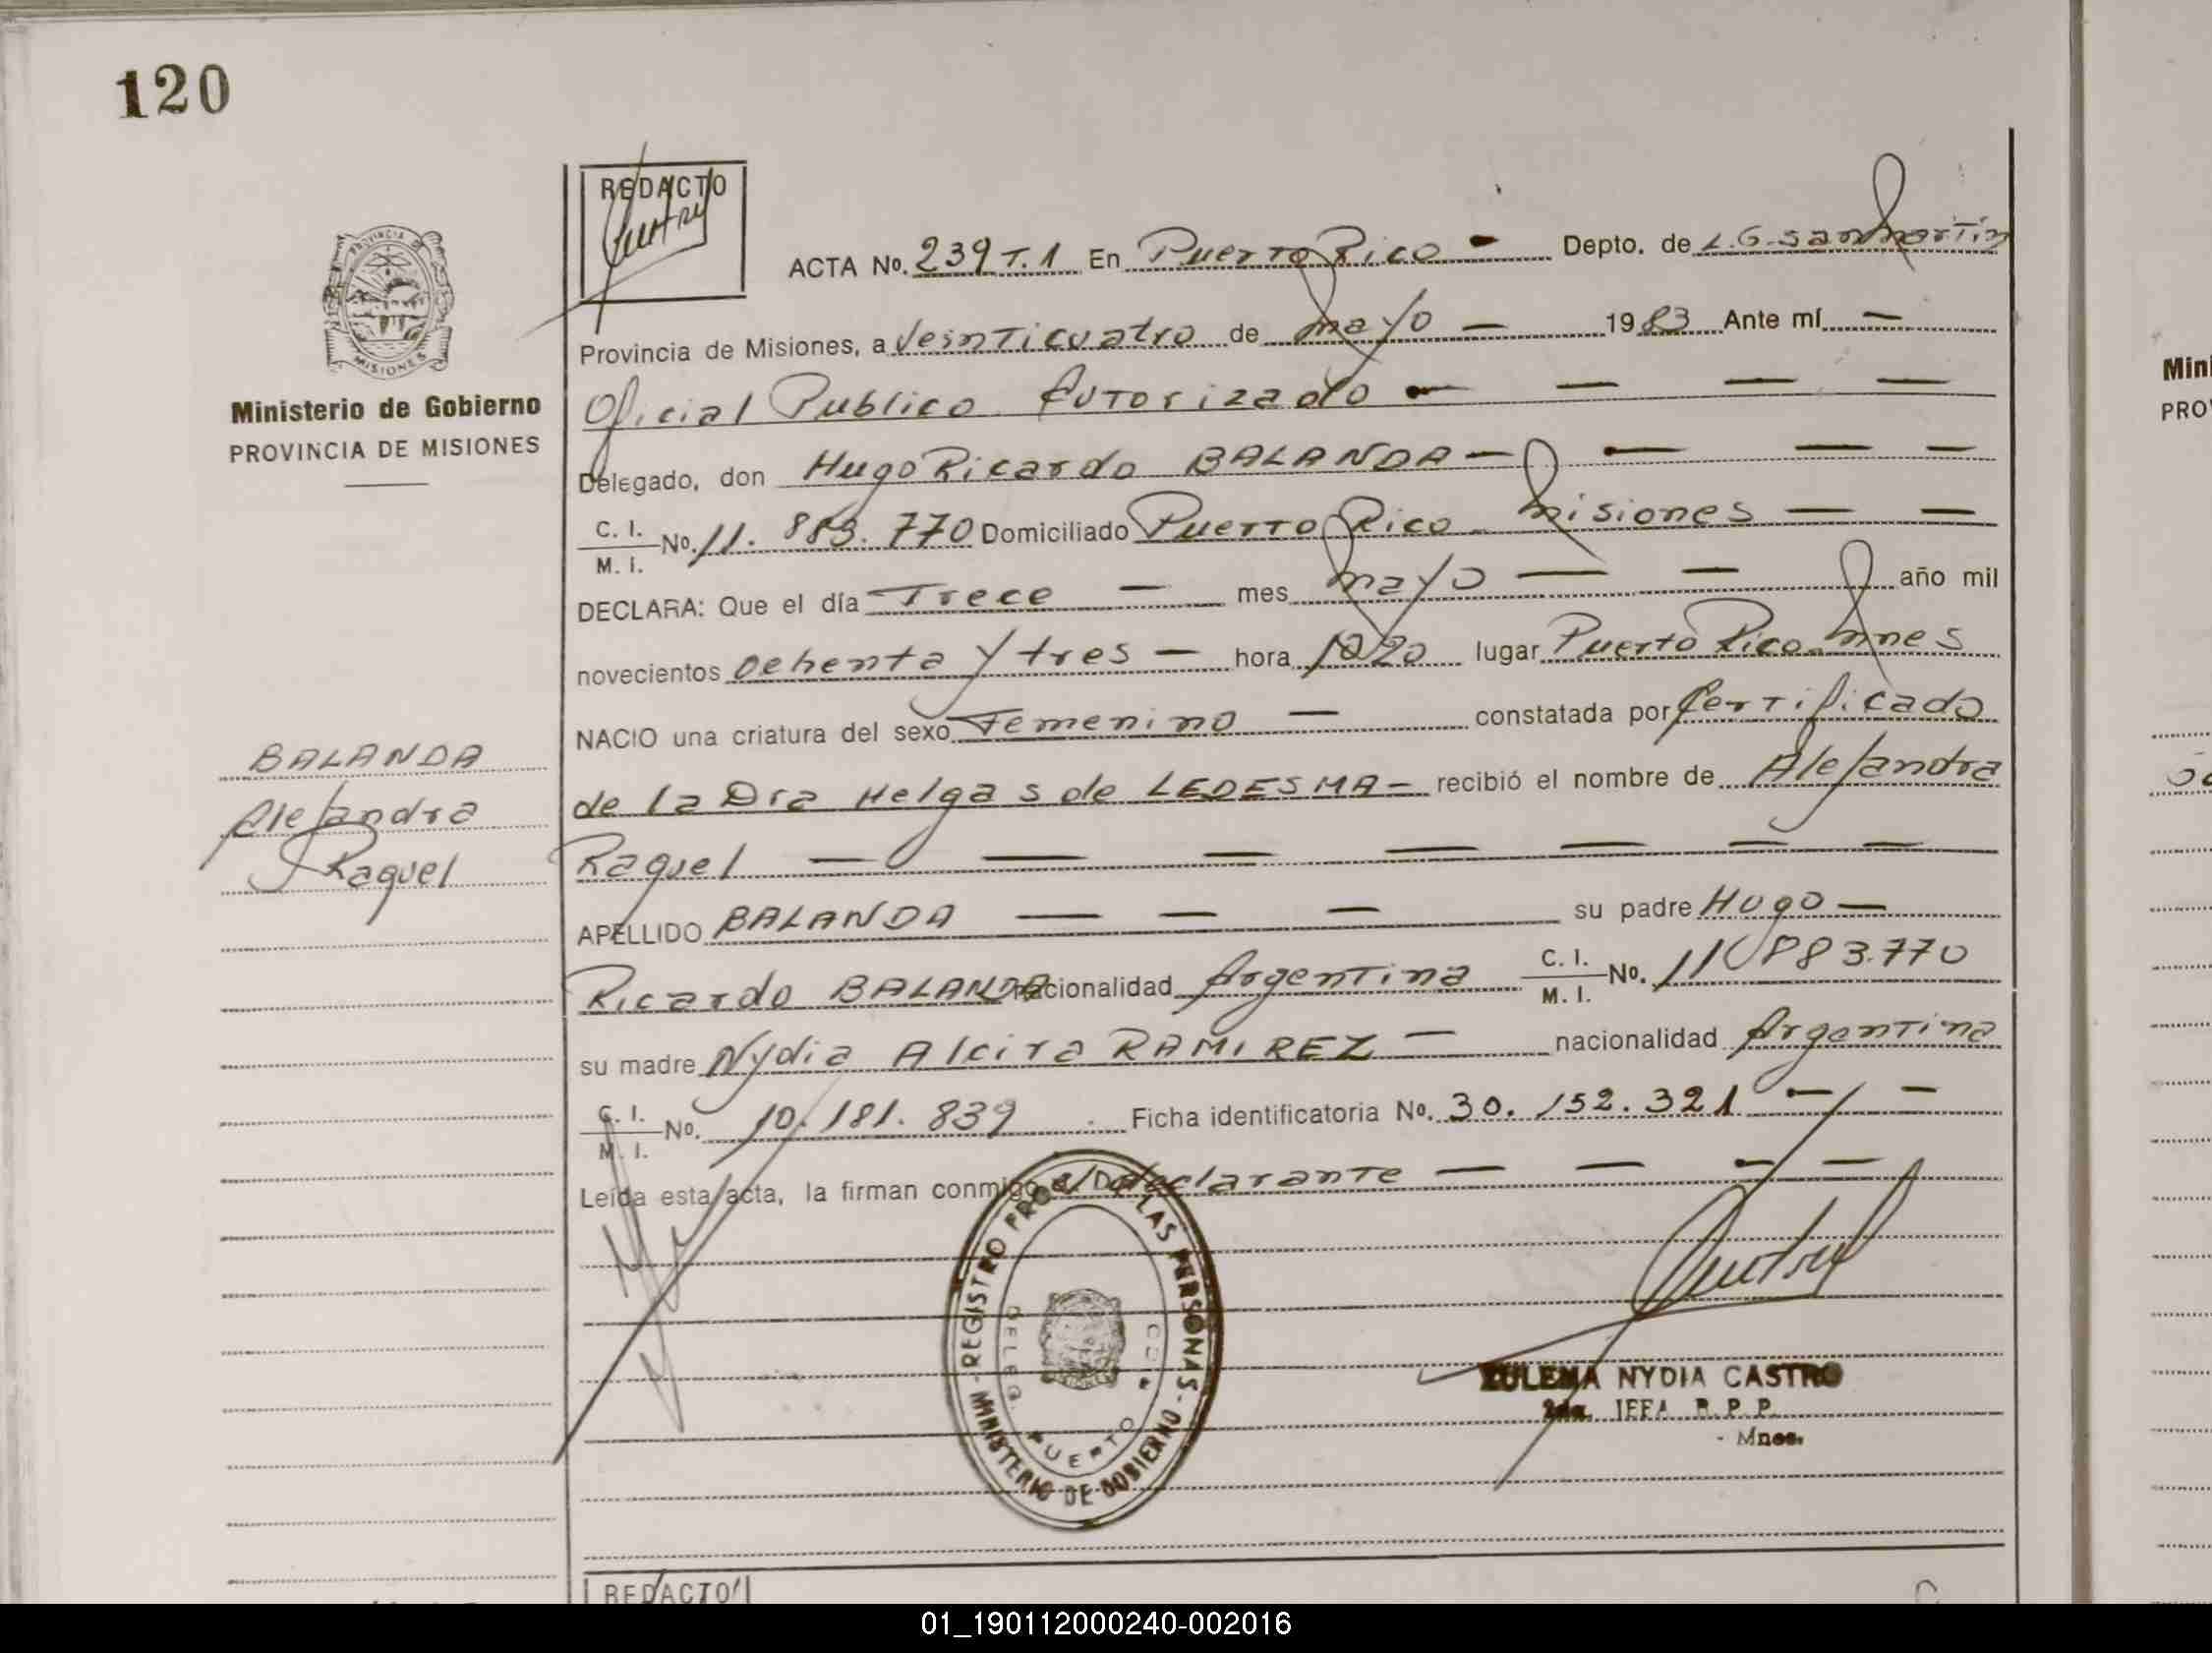 120
REDACTO
ACTA No. 239 T.1 En Puerto Rico - Depto. de L.G. San Martin
Provincia de Misiones, a Veinticuatro de mayo — 1983 Ante mí —
Oficial Publico Autorizado — — — —
Ministerio de Gobierno
PROVINCIA DE MISIONES
Delegado, don Hugo Ricardo BALANDA — — — —
C. I. / M. I. No. 11. 883. 770 Domiciliado Puerto Rico - Misiones — —
DECLARA: Que el día Trece — mes mayo — — año mil
novecientos Ochenta y tres — hora 10/20 lugar Puerto Rico - Mnes
NACIO una criatura del sexo Femenino — constatada por Certificado
de la Dra Helga S de LEDESMA — recibió el nombre de Alejandra
Raquel — — — — — — —
BALANDA
Alejandra
Raquel
APELLIDO BALANDA — — — su padre Hugo —
Ricardo BALANDA nacionalidad Argentina C. I. / M. I. No. 11.883.770
su madre Nydia Alcira RAMIREZ — nacionalidad Argentina
C. I. / M. I. No. 10. 181. 839 Ficha identificatoria No. 30. 152. 321 — —
Leída esta acta, la firman conmigo el Declarante — — — —
REGISTRO PROV. DE LAS PERSONAS - MINISTERIO DE GOBIERNO -
DELEG. PUERTO RICO
ZULEMA NYDIA CASTRO
2da. JEFA R. P. P.
- Mnes.
REDACTO
Mini
PRO
01_190112000240-002016